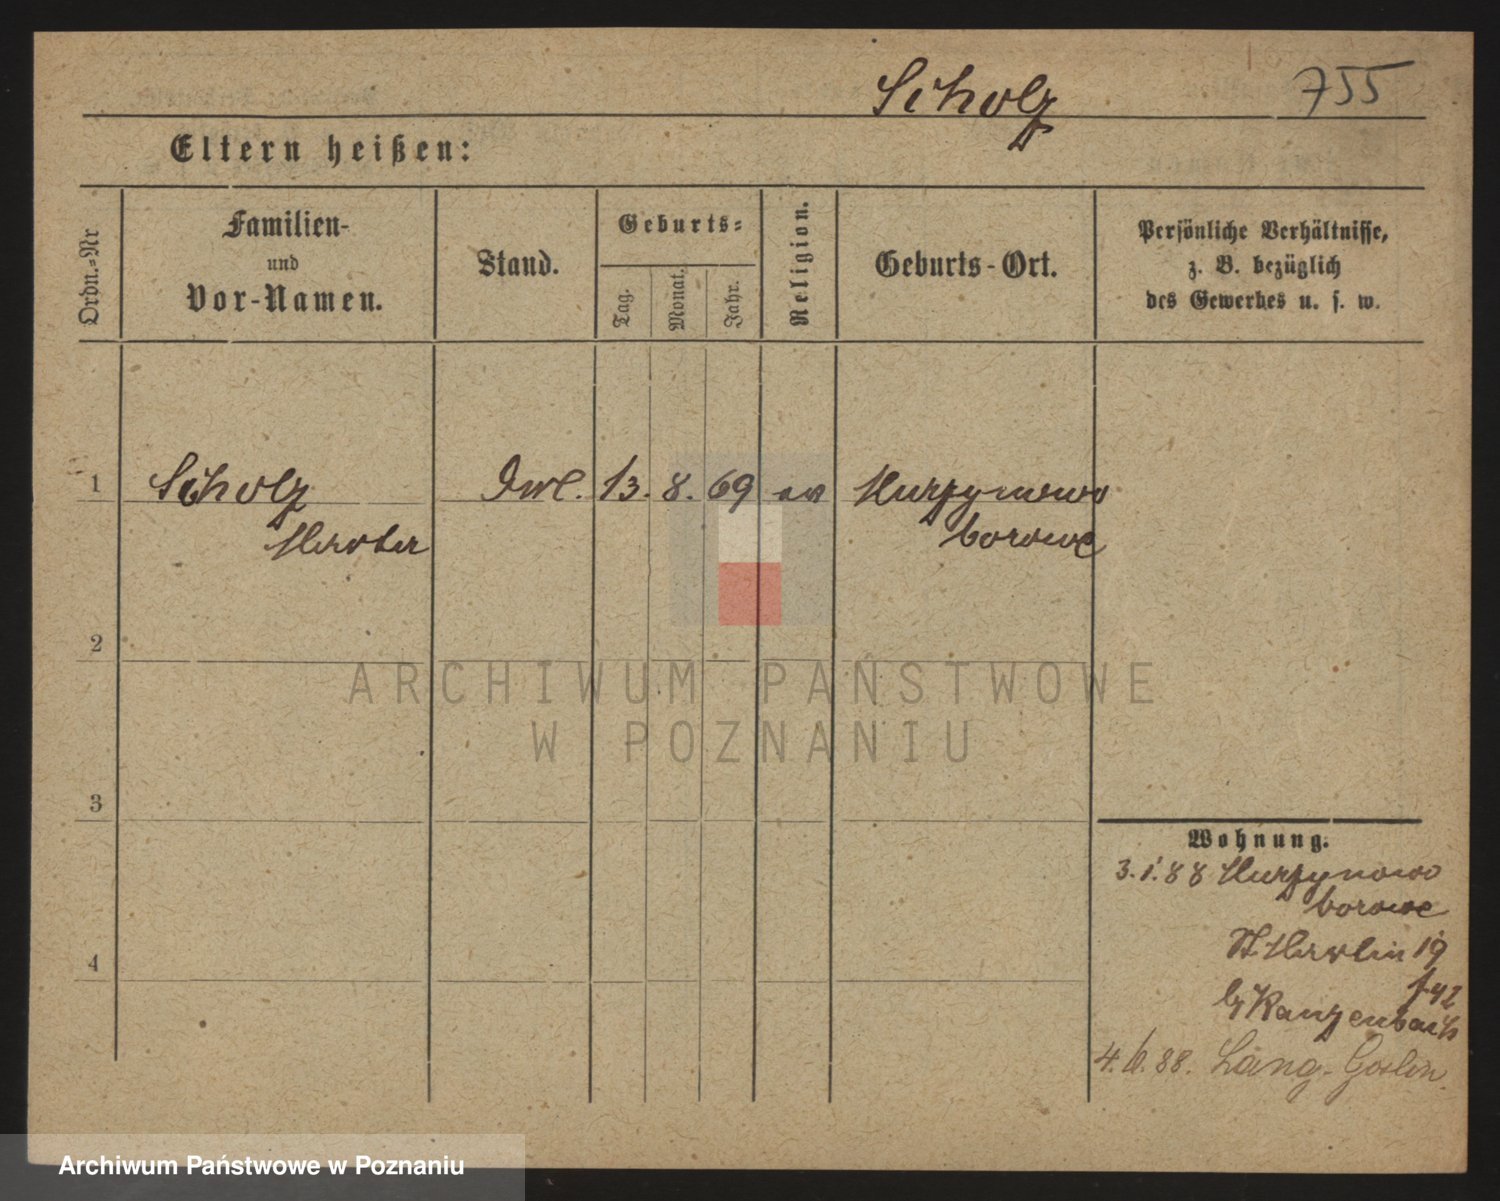 Scholz 755
Eltern heißen:
Ordn.-Nr
Familien-
und
Vor-Namen.
Stand.
Geburts-
Tag.
Monat.
Jahr.
Religion.
Geburts-Ort.
Persönliche Verhältnisse,
z. B. bezüglich
des Gewerbes u. s. w.
1 Scholz 13. 8. 69 ev Murzynowo
borowe
2
3
4
Wohnung.
3.1.88 Murzynowo
borowe
St. Martin 19
Kanzenbach
4.6.88. Lang-Goslin.
ARCHIWUM PAŃSTWOWE
W POZNANIU
Archiwum Państwowe w Poznaniu